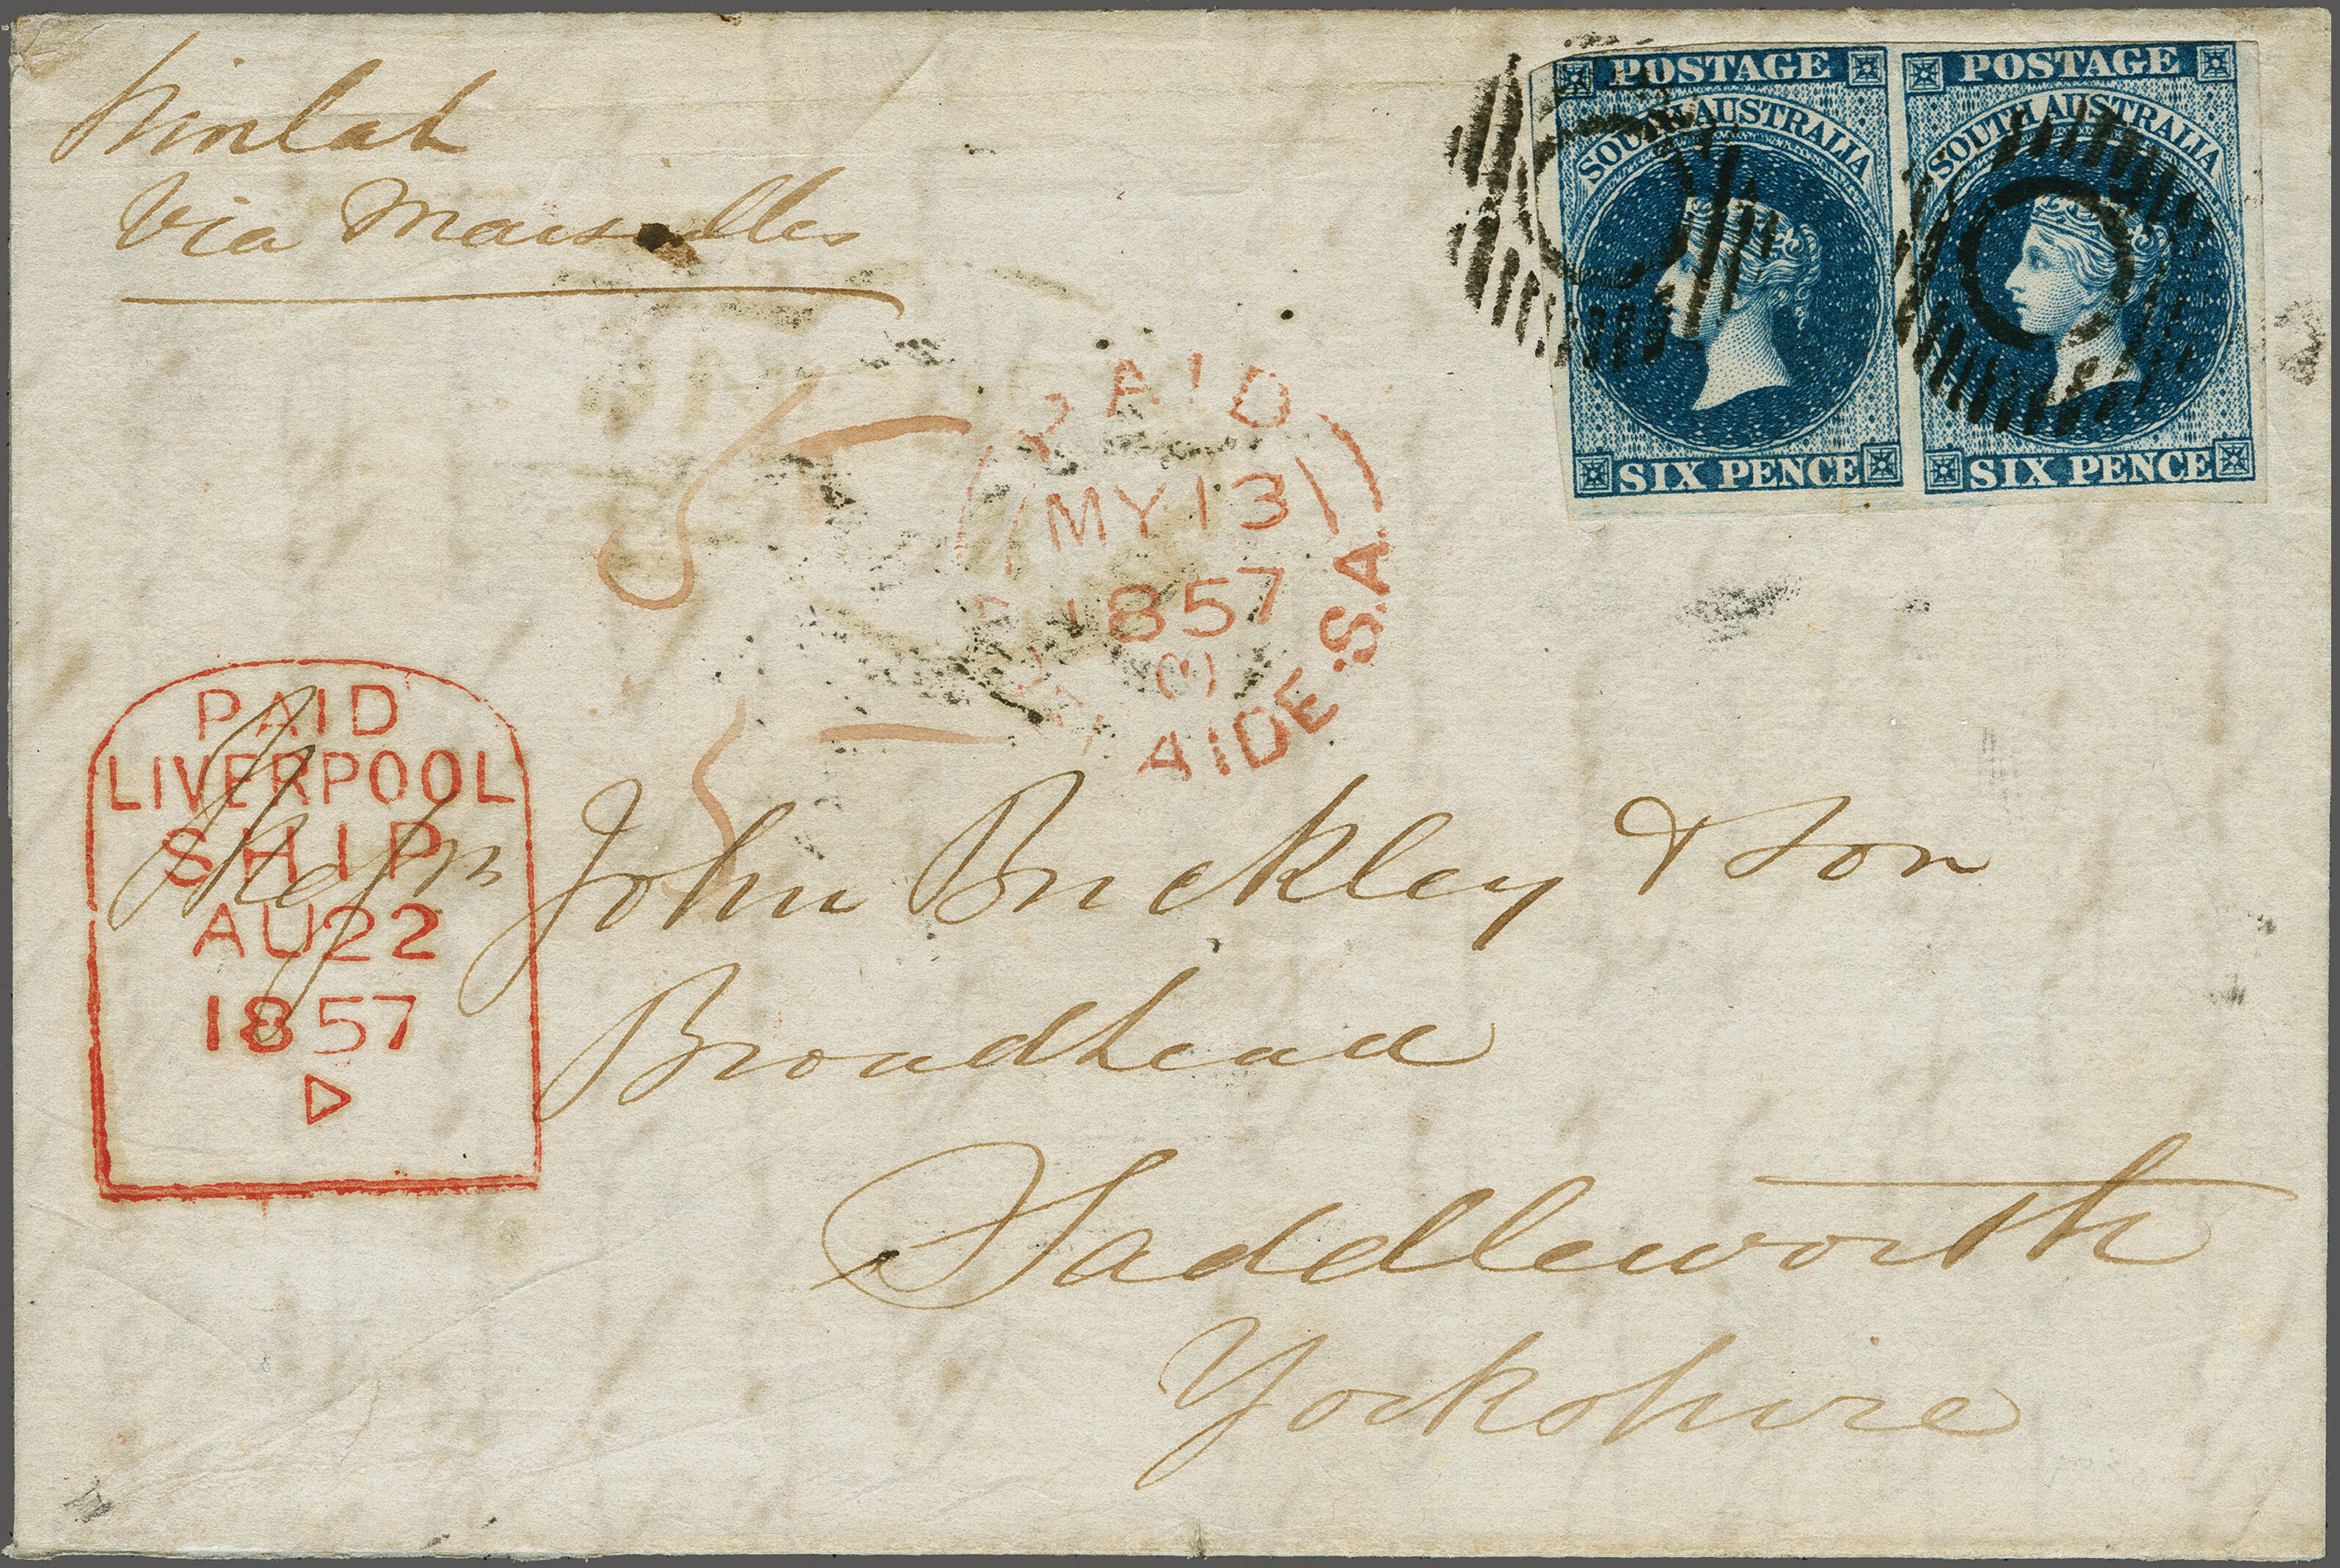 via Marseilles
POSTAGE
SOUTH AUSTRALIA
SIX PENCE
POSTAGE
SOUTH AUSTRALIA
SIX PENCE
PAID
MY 13
1857
AIDE.S.A
PAID
LIVERPOOL
SHIP
AU 22
1857
John Buckley & Son
Broadhead
Saddleworth
Yorkshire